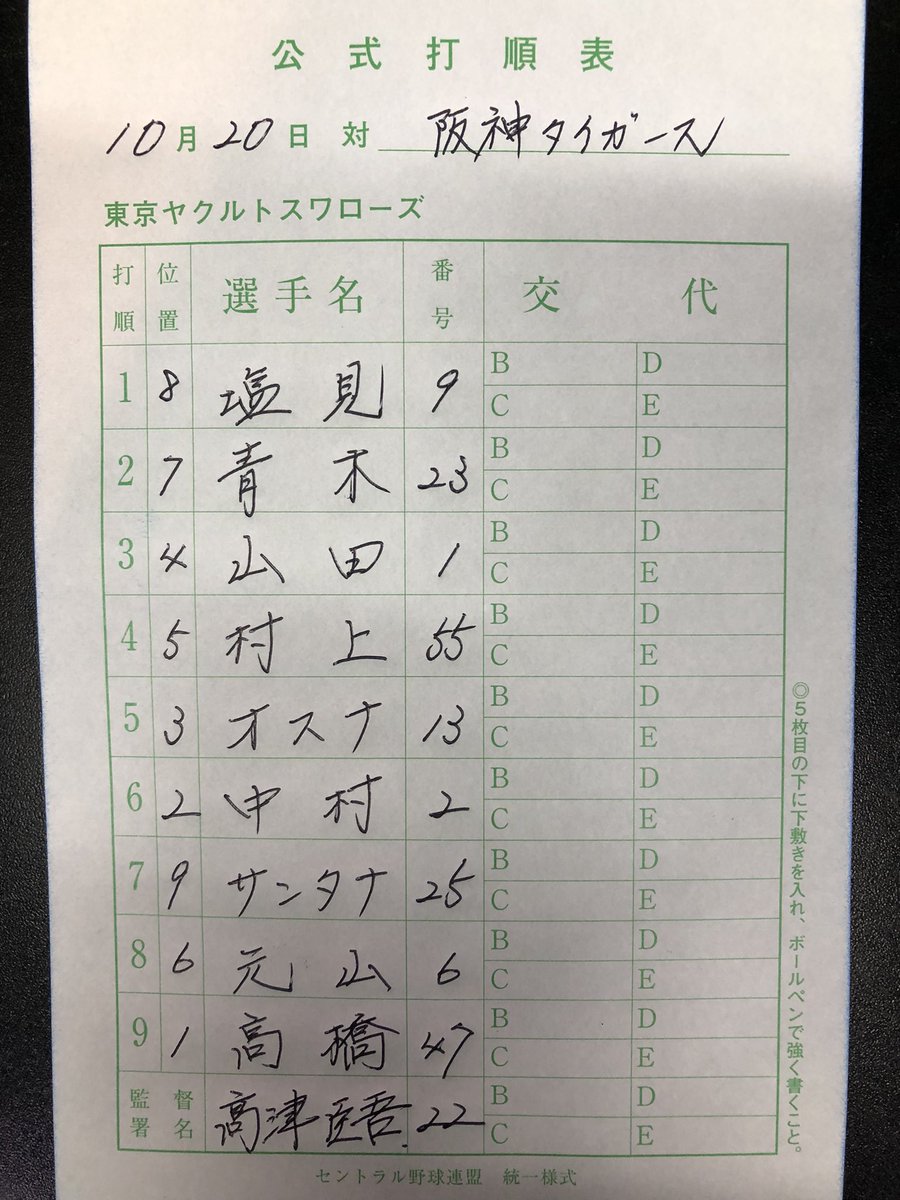 公式打順表
10月20日 対 阪神タイガース
東京ヤクルトスワローズ
打順 位置 選手名 番号 交代
1 8 塩見 9 B D
C E
2 7 青木 23 B D
C E
3 4 山田 1 B D
C E
4 5 村上 55 B D
C E
5 3 オスナ 13 B D
C E
6 2 中村 2 B D
C E
7 9 サンタナ 25 B D
C E
8 6 元山 6 B D
C E
9 1 高橋 47 B D
C E
監督署名 高津臣吾 22 B D
C E
◎5枚目の下に下敷きを入れ、ボールペンで強く書くこと。
セントラル野球連盟 統一様式